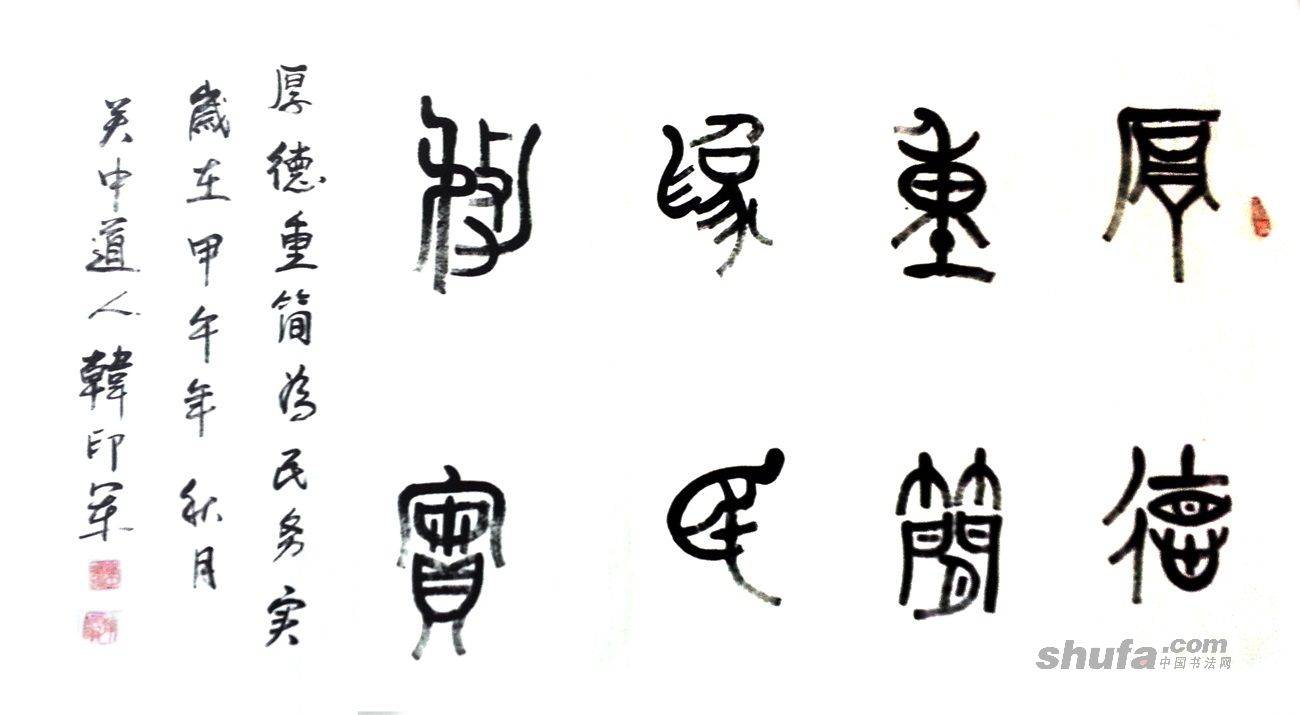 厚德
重簡
為民
務實
厚德重简為民务实
歲在甲午年秋月
关中道人韓印军
shufa.com
中国书法网